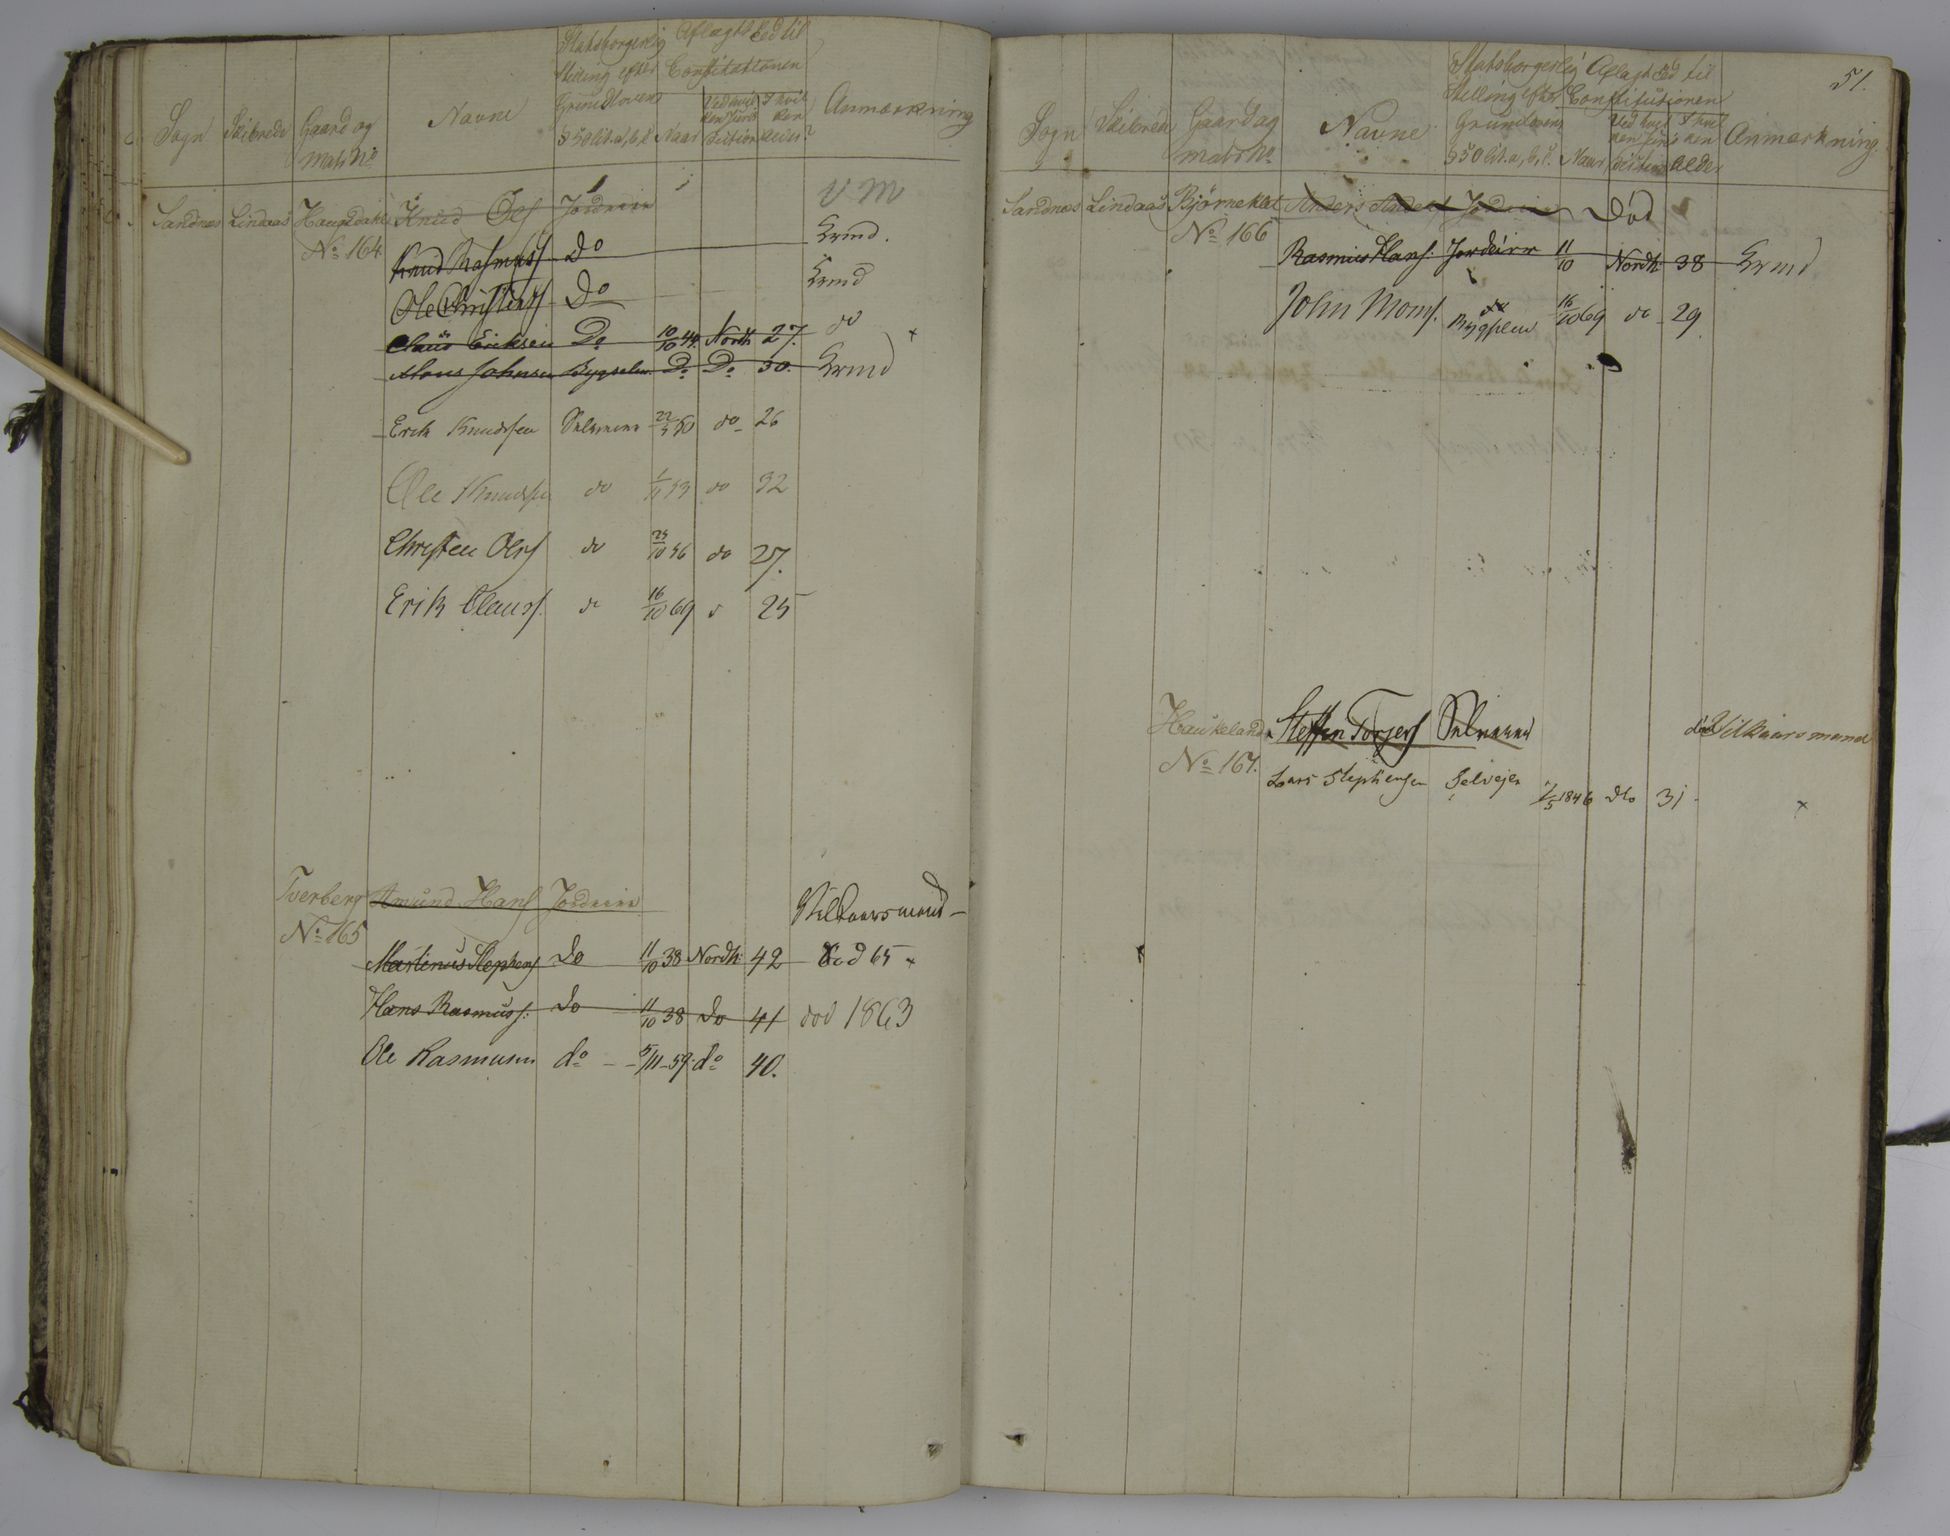 Sogn Skibrede Gaard og Matr No Navne Statsborgerlig Stilling efter Grundlovens § 50 lit. a, b, c Aflagt Eed til Constitutionen Naar Ved hvilken Jurisdiction I hvilken Alder? Anmærkning
Sandnæs Lindaas No 164 Knud Ols Jordeier V M
Knud Rasmuss Do
Ole Christens Do
Claus Eriksen Do 10/10 44. Nordh 27. do
Mons Johnsen Bygselm Do Do 30.
Erik Knudsen Selveier 60 do 26
Ole Knudsen do 53 do 32
Christen Ols do 25/10 56 do 27.
Erik Clauss. do 16/10 69 d 25
Tverberg No 165 Amund Hans Jordeier Vilkaarsmand
Martinus Stephens Do 11/10 38 Nordh 42 død 65 x
Hans Rasmuss: Do 11/10 38 Do 41 død 1863
Ole Rasmusen do 5/11-59. do 40.
51.
Sogn Skibrede Gaard og Matr No Navne Statsborgerlig Stilling efter Grundlovens § 50 lit. a, b, c. Aflagt Eed til Constitutionen Naar Ved hvilken Jurisdiction I hvilken Alder Anmærkning
Sandnæs Lindaas No 166 Anders Anders Jordeier Død
Rasmus Hans: Jordeier 11/10 Nordh 38
John Mons. 16/10 69 do 29
Haukeland No 167. Steffen Torjers Selveier Vilkaarsmand
Lars Stephensen Selvejer 7/5 1846 dto 31 x